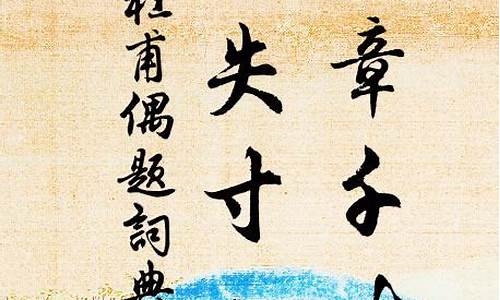 章千
失寸
杜甫偶题詞典